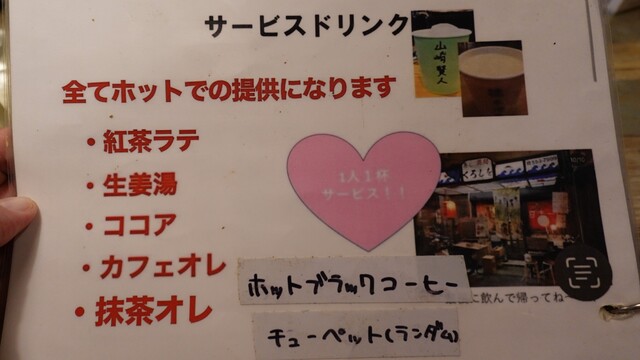 サービスドリンク
山崎賢人
全てホットでの提供になります
・紅茶ラテ
・生姜湯
・ココア
・カフェオレ
・抹茶オレ
1人1杯
サービス！！
くろしお
に飲んで帰ってね
ホットブラックコーヒー
チューペット(ランダム)